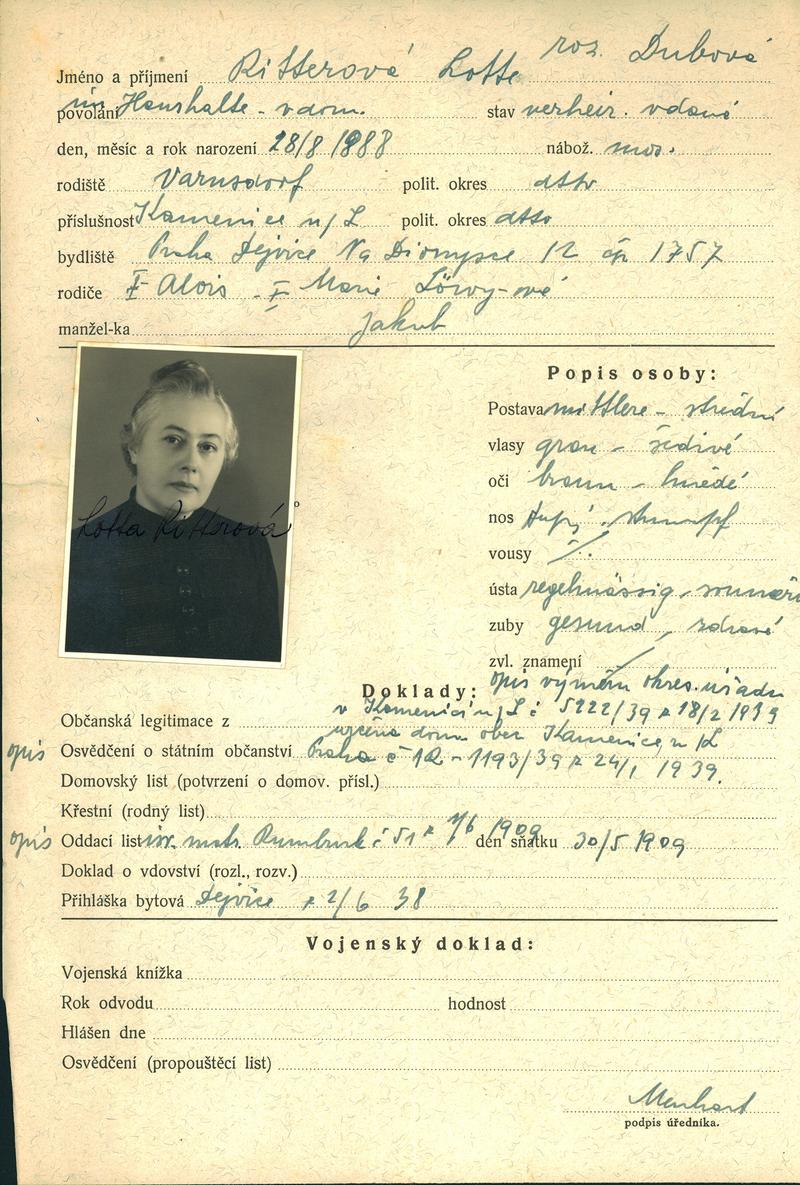 roz. Dubová
Jméno a příjmení Ritterová Lotte
povolání im Haushalte - v dom. stav verheir. vdaná
den, měsíc a rok narození 28/8 1888 nábož. mos.
rodiště Varnsdorf polit. okres dtto
příslušnost Kamenice n/L polit. okres dtto
bydliště Praha Dejvice Na Dionysce 12 čp 1757
rodiče Alois - Marie Löwy-ové
manžel-ka Jakub
Popis osoby:
Postava mittlere - střední
vlasy grau - šedivé
oči braun - hnědé
nos tupý, stumpf
vousy
Lotta Ritterová
ústa regelmässig, souměr
zuby gesund, zdravé
zvl. znamení
opis výměru okres. úřadu
Doklady:
v Kamenici n/L č 5222/39 z 18/2 1939
Občanská legitimace z
opis Osvědčení o státním občanství
obec Kamenice n/L
Praha č 1193/39 z 24/1 1939.
Domovský list (potvrzení o domov. přísl.)
Křestní (rodný list)
opis Oddací list isr. matr. Rumburk č 51 z 7/6 1909 den sňatku 30/5 1909
Doklad o vdovství (rozl., rozv.)
Přihláška bytová Dejvice z 2/6 38
Vojenský doklad:
Vojenská knížka
Rok odvodu hodnost
Hlášen dne
Osvědčení (propouštěcí list)
Menhart
podpis úředníka.